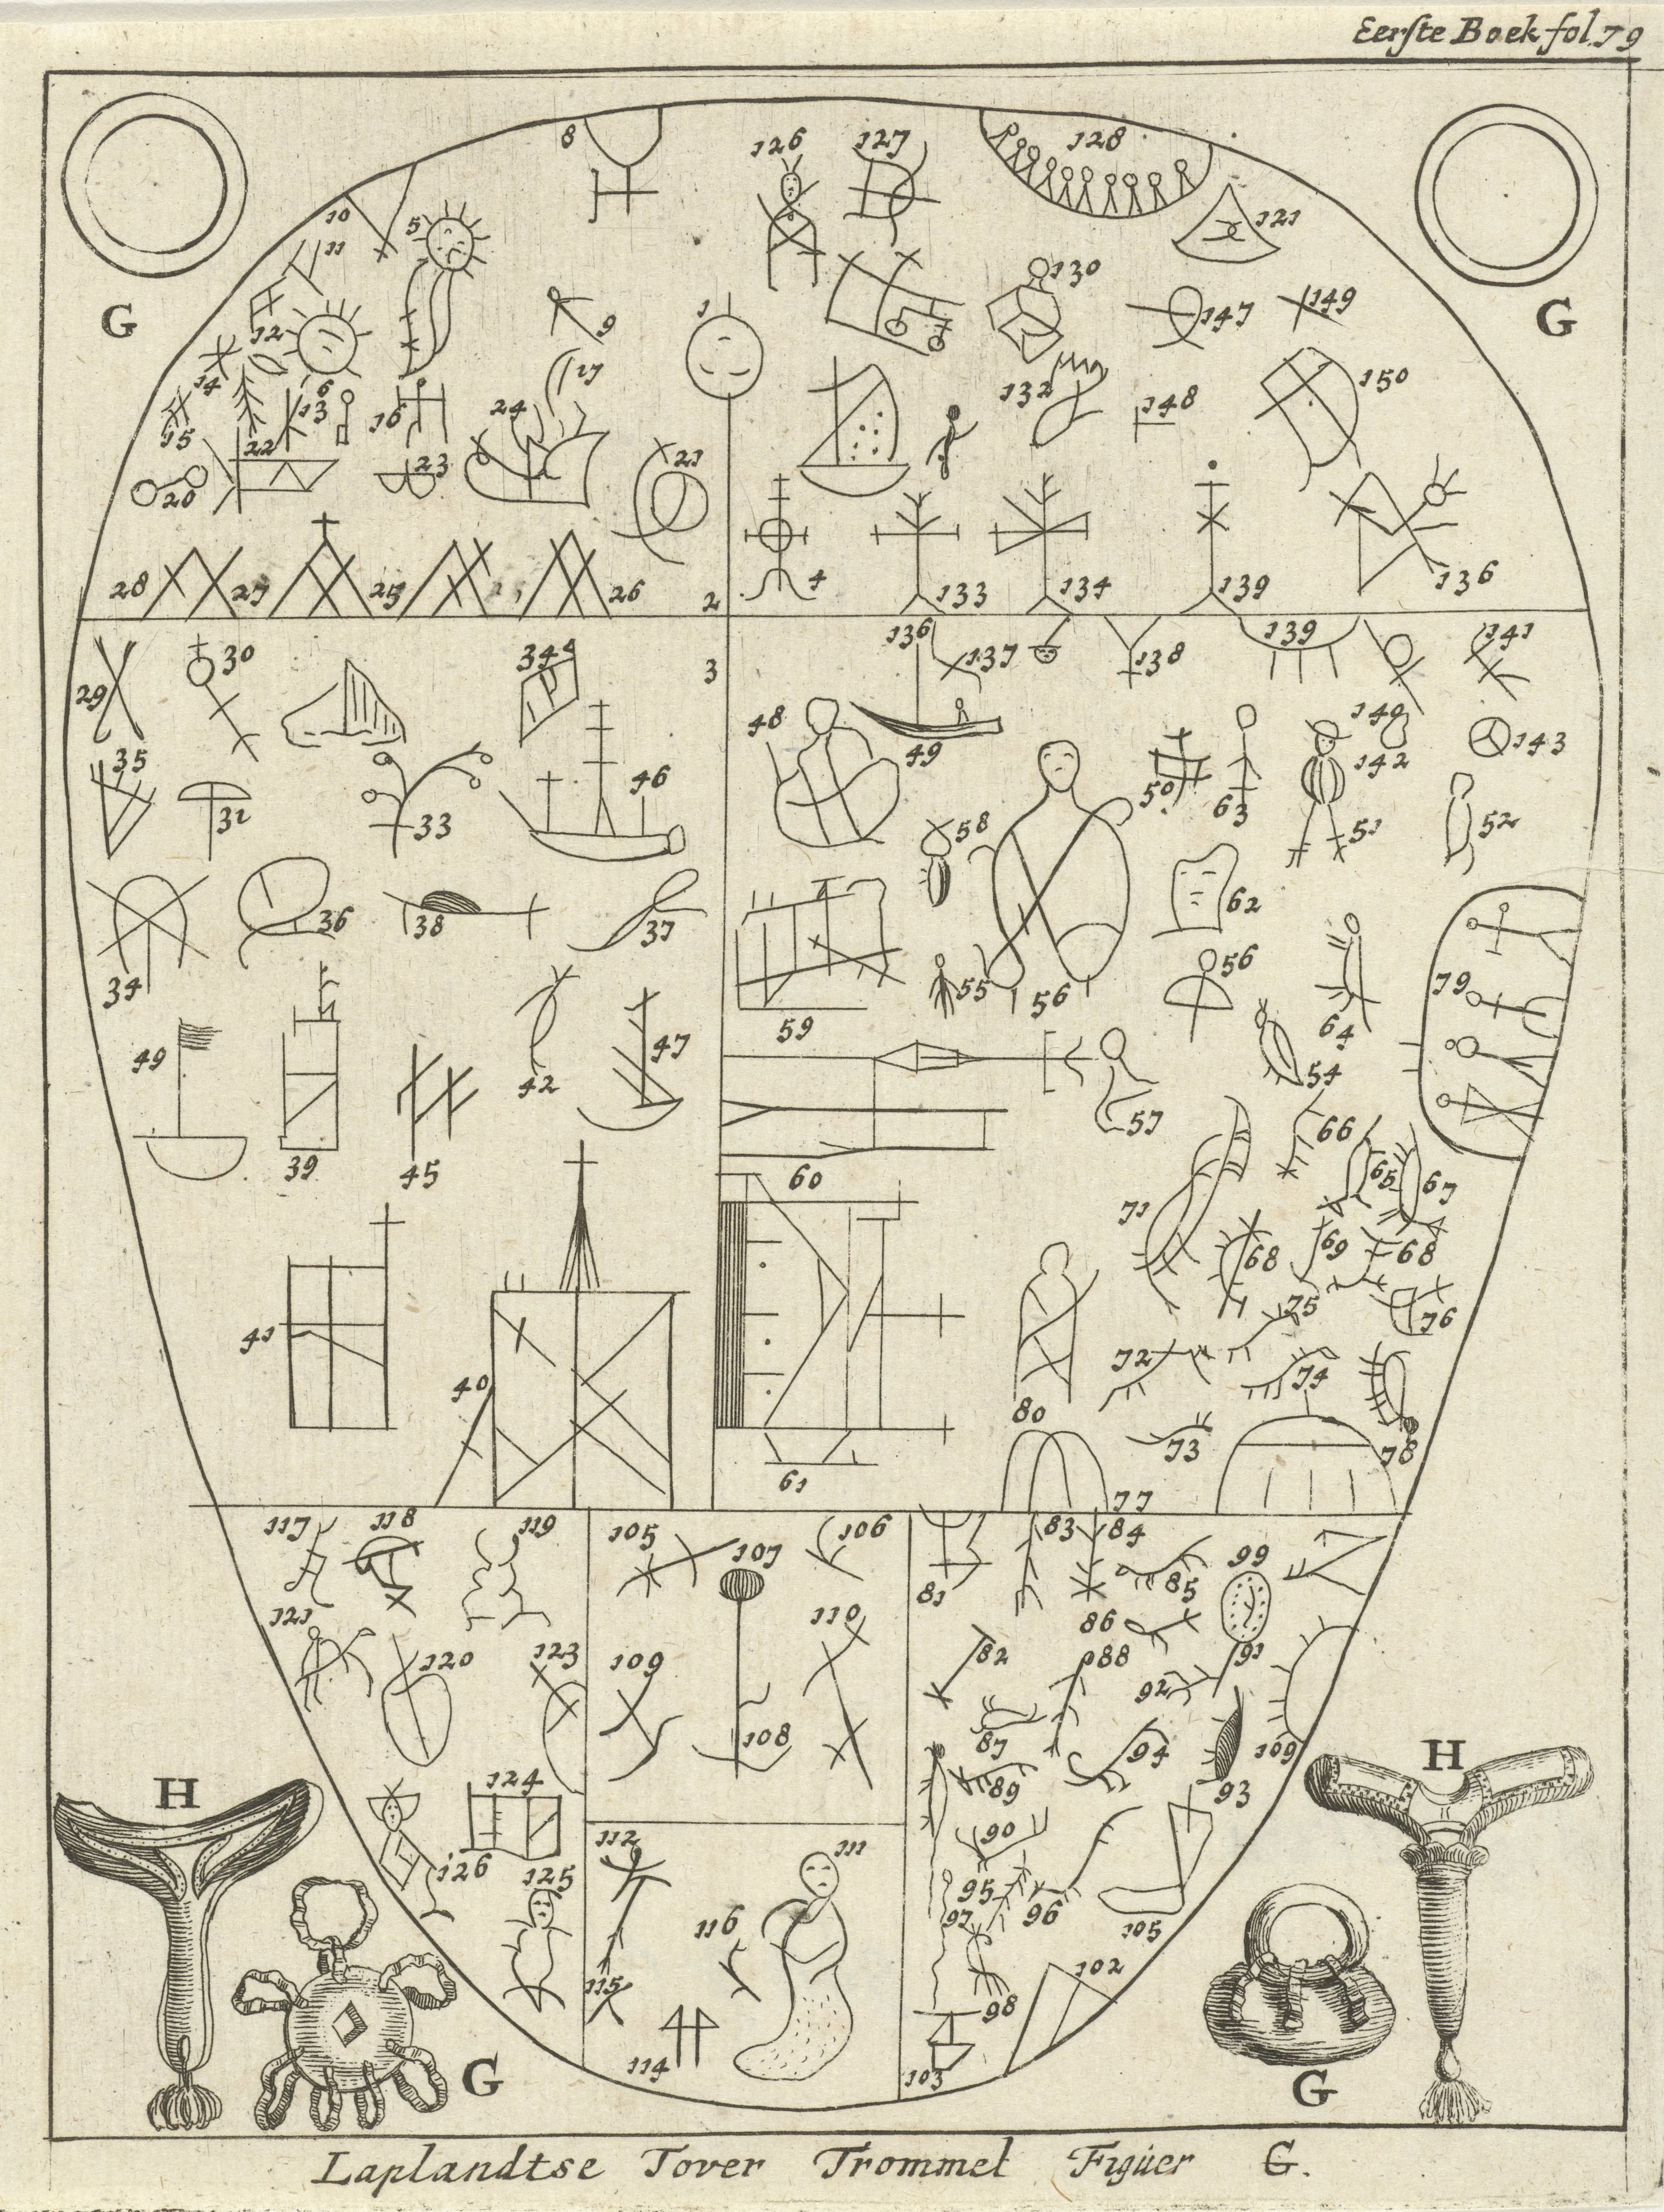 Eerste Boek fol. 79
8 126 127 128
10 5 121
11 130
G 12 9 1 147 149 G
14 6 17 132 150
15 13 16 24 148
22 23 21
20
4
28 27 25 26 2 133 134 139 136
136 137 138 139 141
29 30 344 3
48 49 140 143
35 142
31 33 46 50 63 51 52
58
36 38 37 62
34 59 55 56 56 79
64
49 42 47 54
39 45 60 57 66
65 67
71 68 69 68
41 75 76
40 72 74
80 73 78
61 77
117 118 119 105 106 83 84
107 81 85 99
121 110 86
120 123 109 82 88 91
92
108 87 94 109
H 124 89 93 H
112 111 90
126 125 95
116 97 96 105
115 102
98
114 103
G G
Laplandtse Tover Trommel Figuer G.